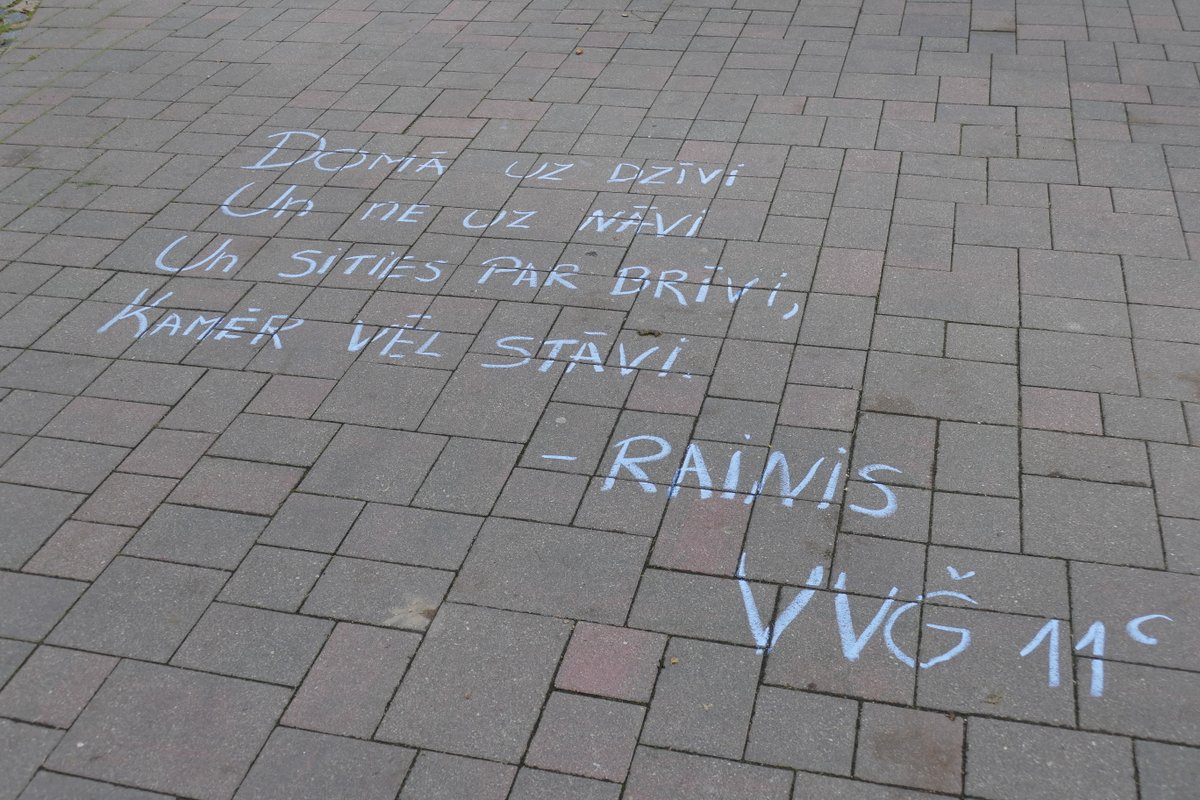 Domā uz dzīvi
Un ne uz nāvi
Un sities par brīvi,
Kamēr vēl stāvi.
- RAINIS
VVĞ 11c